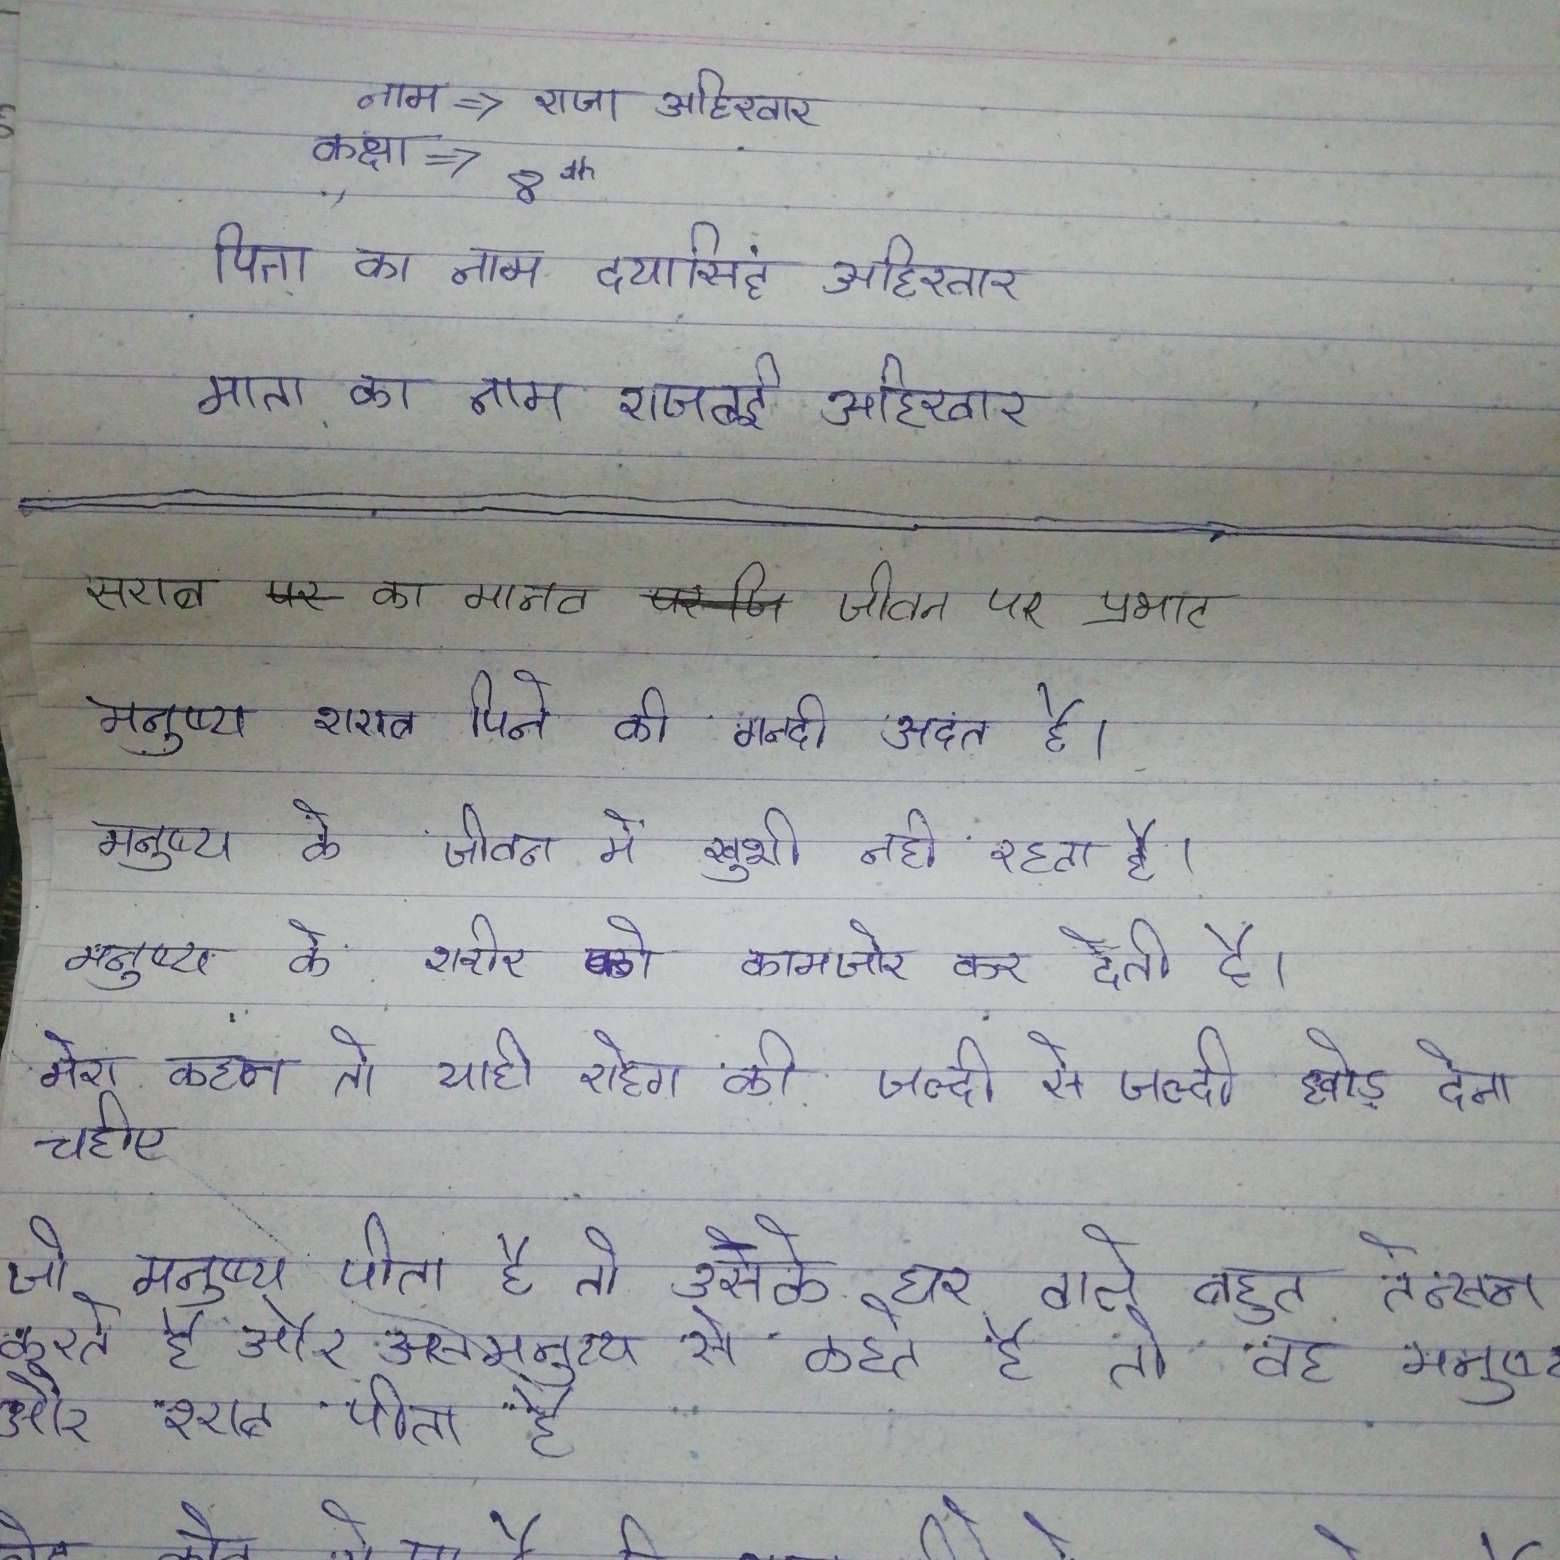 नाम => राजा अहिरवार
कक्षा => 8th
पिता का नाम दयासिहं अहिरवार
माता का नाम राजबई अहिरवार
सराब पर का मानव जीवन पर प्रभाव
मनुष्य शराब पिने की गनदी अदत है।
मनुष्य के जीवन में खुशी नही रहता है।
मनुष्य के शरीर को कामजोर कर देती है।
मेरा कहन तो याही रोहग की जल्दी से जल्दी छोड़ देना
चहीए
जो मनुष्य पीता है तो उसके घर वाले बहुत तेन्सन
करते है और उस मनुष्य से कहते है तो वह मनुष्य
और शराब पीता है